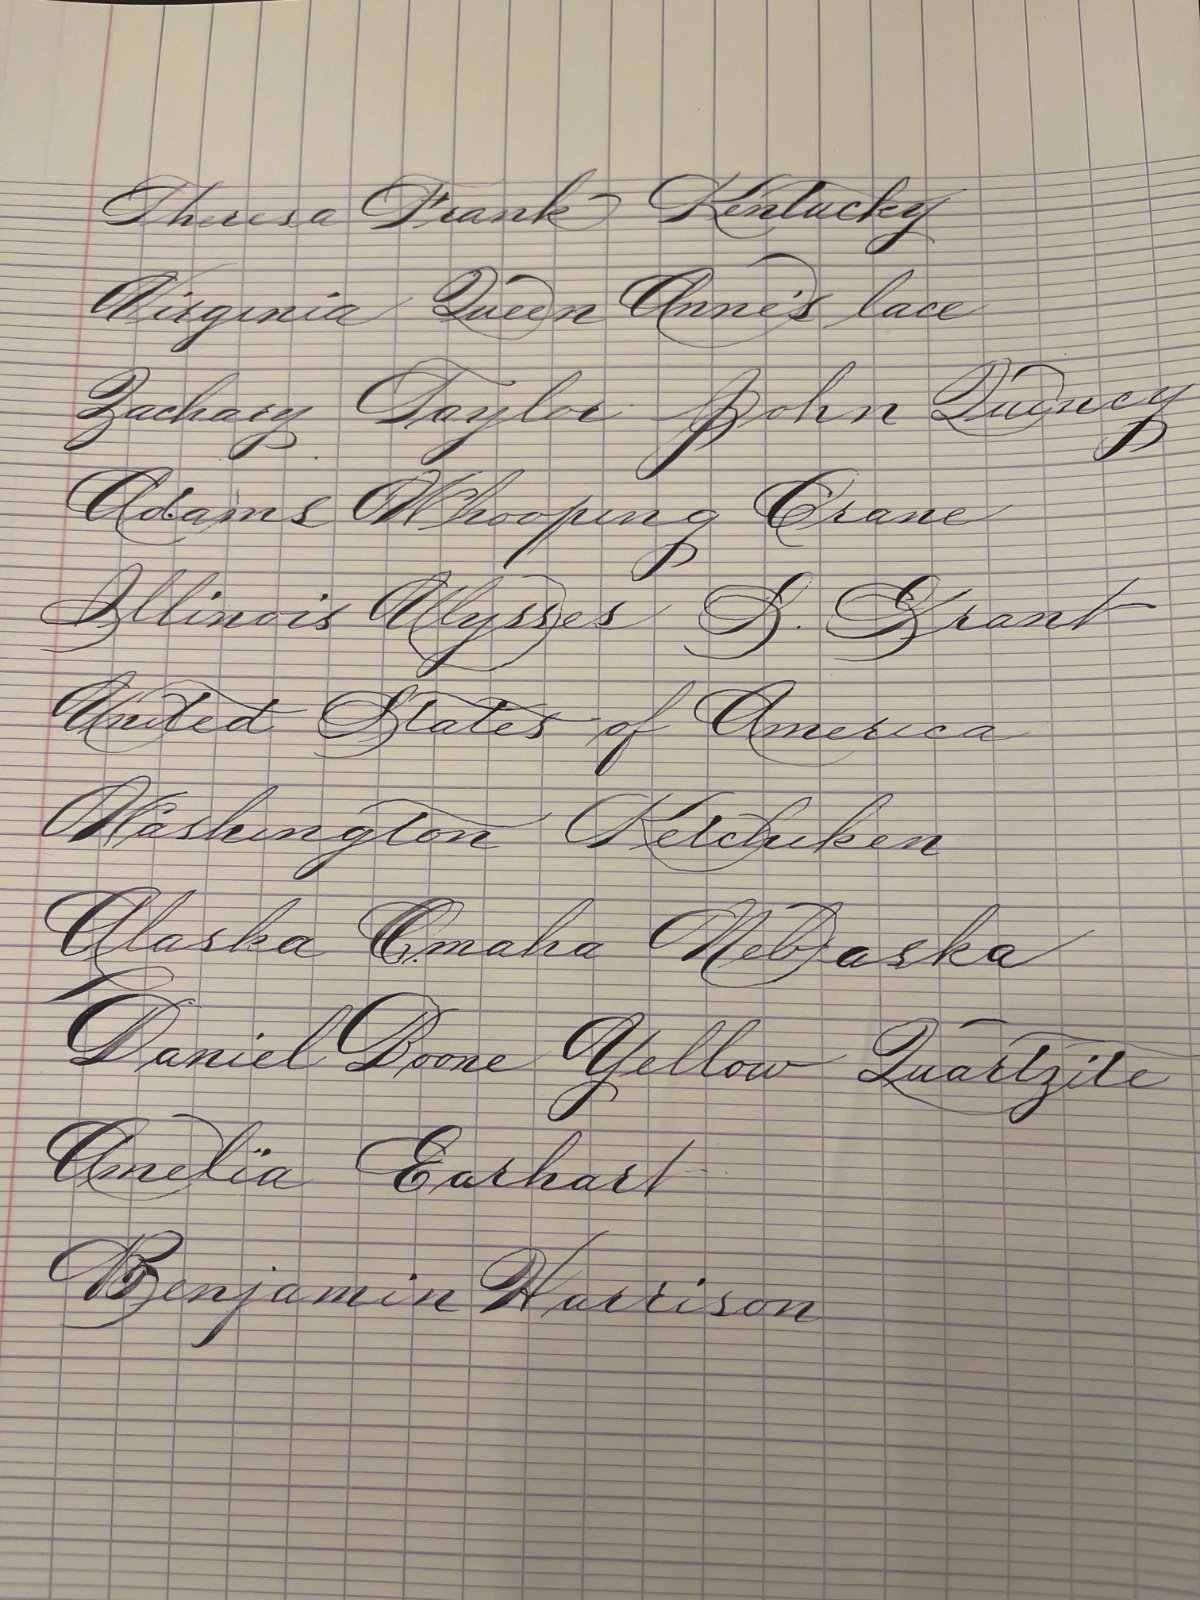 Theresa Frank Kentucky
Virginia Queen Anne's lace
Zachary Taylor John Quency
Adams Whooping Crane
Illinois Ulysses S. Grant
United States of America
Washington Ketchiken
Alaska Omaha Nebraska
Daniel Boone Yellow Quartzite
Amelia Earhart
Benjamin Harrison